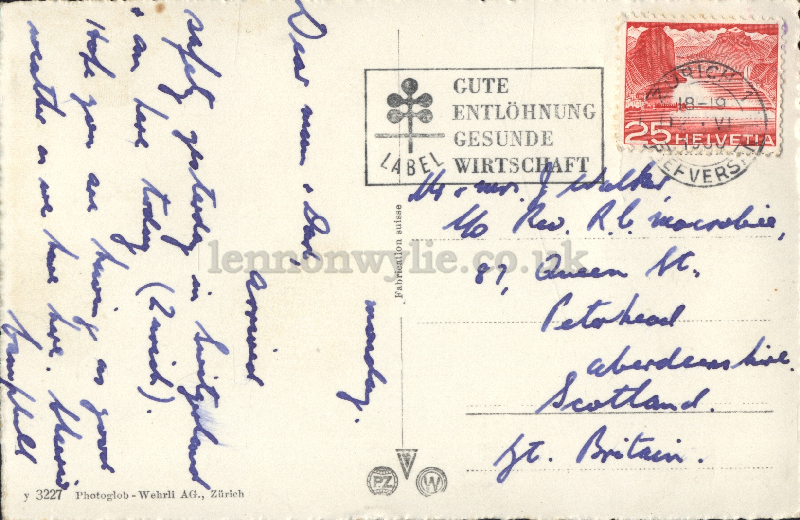 monday.
Dear mum & Dad, arrived
safely yesterday in Switzerland
& am here today (Zurich).
Hope you are having as good
weather as we have here. Cheerio
Campbell
GUTE
ENTLÖHNUNG
GESUNDE
WIRTSCHAFT
LABEL
ZÜRICH
18-19
VI
BRIEFVERSAND
25 HELVETIA
Mr & Mrs. J Walker,
c/o Rev. R. C. Macrobie,
87, Queen St.
Peterhead
Aberdeenshire.
Scotland.
Gt. Britain.
Fabrication suisse
lennonwylie.co.uk
PZ
W
y 3227 Photoglob-Wehrli AG., Zürich